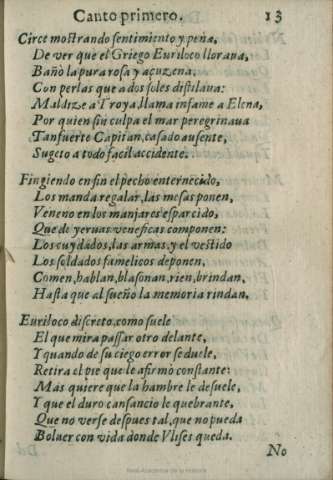 Canto primero. 13
Circe mostrando sentimiento y pena,
De ver que el Griego Euriloco lloraua,
Bañò la pura rosa y açuzena,
Con perlas que a dos soles distilaua:
Maldize a Troya, llama infame a Elena,
Por quien sin culpa el mar peregrinaua
Tan fuerte Capitan, casado ausente,
Sugeto a todo facil accidente.
Fingiendo enfin el pecho enternecido,
Los manda regalar, las mesas ponen,
Veneno en los manjares esparcido,
Que de yeruas veneficas componen:
Los cuydados, las armas, y el vestido
Los soldados famelicos deponen,
Comen, hablan, blasonan, rien, brindan,
Hasta que al sueño la memoria rindan.
Euriloco discreto, como suele
El que mira passar otro delante,
Y quando de su ciego error se duele,
Retira el pie que le afirmò constante:
Mas quiere que la hambre le desuele,
Y que el duro cansancio le quebrante,
Que no verse despues tal, que no pueda
Boluer con vida donde Vlises queda.
No
Real Academia de la Historia